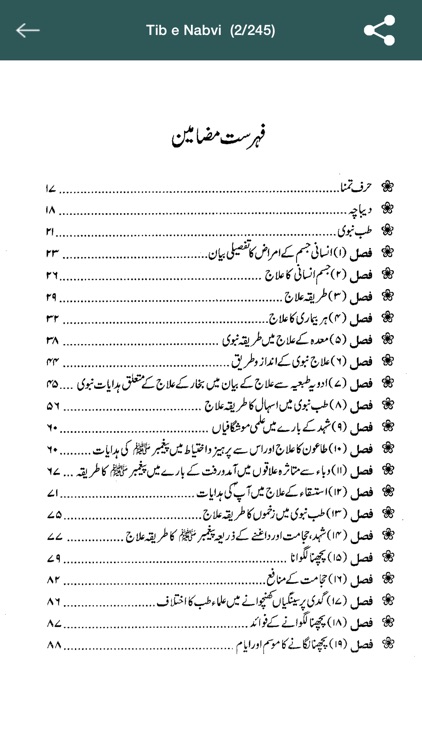 Tib e Nabvi (2/245)
فہرست مضامین
حرف تمنا ۱۷
دیباچہ ۱۸
طب نبوی ۲۱
فصل (۱) انسانی جسم کے امراض کا تفصیلی بیان ۲۳
فصل (۲) جسم انسانی کا علاج ۲۶
فصل (۳) طریقہ علاج ۲۹
فصل (۴) ہر بیماری کا علاج ۳۲
فصل (۵) معدہ کے علاج میں طریقہ نبوی ۳۸
فصل (۶) علاج نبوی کے انداز و طریق ۴۴
فصل (۷) ادویہ طبعیہ سے علاج کے بیان میں بخار کے علاج کے متعلق ہدایات نبوی ۴۵
فصل (۸) طب نبوی میں اسہال کا طریقہ علاج ۵۶
فصل (۹) شہد کے بارے میں علمی موشگافیاں ۶۰
فصل (۱۰) طاعون کا علاج اور اس سے پرہیز و احتیاط میں پیغمبر ﷺ کی ہدایات ۶۰
فصل (۱۱) وباء سے متاثرہ علاقوں میں آمد و رفت کے بارے میں پیغمبر ﷺ کا طریقہ ۶۷
فصل (۱۲) استسقاء کے علاج میں آپ کی ہدایات ۷۱
فصل (۱۳) طب نبوی میں زخموں کا طریقہ علاج ۷۵
فصل (۱۴) شہد، حجامت اور داغنے کے ذریعہ پیغمبر ﷺ کا طریقہ علاج ۷۷
فصل (۱۵) پچھنا لگوانا ۷۹
فصل (۱۶) حجامت کے منافع ۸۲
فصل (۱۷) گدی پر سینگیاں کھنچوانے میں علماء طب کا اختلاف ۸۶
فصل (۱۸) پچھنا لگوانے کے فوائد ۸۷
فصل (۱۹) پچھنا لگانے کا موسم اور ایام ۸۸